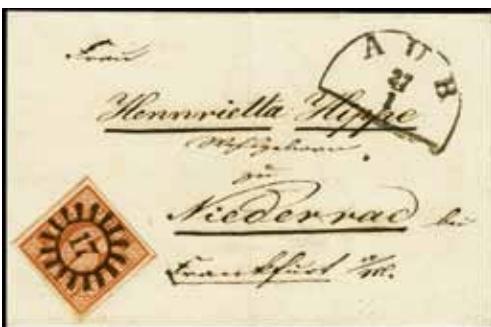 Frau
AUB
27
1
Hennrietta Hippe
Wohlgeboren
zu
Niederrad bei
Frankfurt a/M.
17